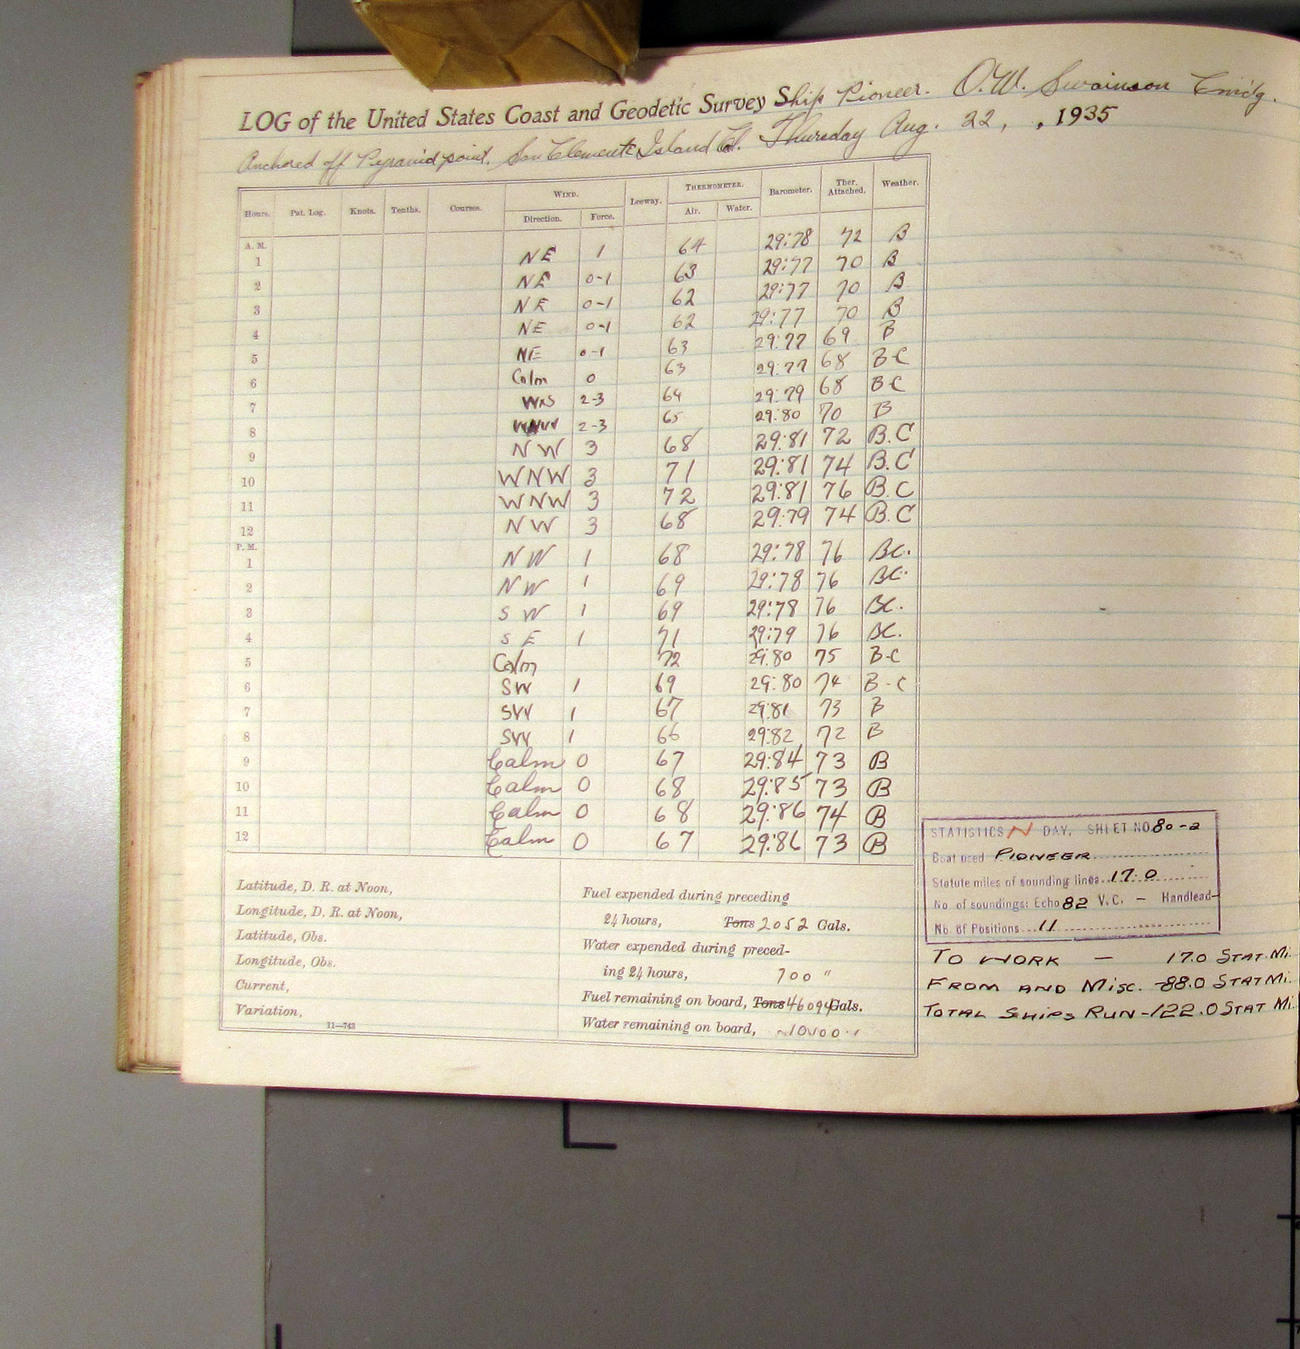 LOG of the United States Coast and Geodetic Survey Ship Pioneer. O.W. Swainson Cmd'g.
Anchored off Pyramid point. San Clemente Island Thursday Aug. 22, , 1935
Hours. Pat. Log. Knots. Tenths. Courses. WIND. Leeway. THERMOMETER. Barometer. Ther. Attached. Weather.
Direction. Force. Air. Water.
A. M.
1 NE 1 64 29:78 72 B
2 NE 0-1 63 29:77 70 B
3 NE 0-1 62 29:77 70 B
4 NE 0-1 62 29:77 70 B
5 NE 0-1 63 29:77 69 B
6 Calm 0 63 29:77 68 B-C
7 WxS 2-3 64 29:79 68 B-C
8 WNW 2-3 65 29:80 70 B
9 NW 3 68 29:81 72 B.C
10 WNW 3 71 29:81 74 B.C
11 WNW 3 72 29:81 76 B.C
12 NW 3 68 29:79 74 B.C
P. M.
1 NW 1 68 29:78 76 BC.
2 NW 1 69 29:78 76 BC.
3 SW 1 69 29:78 76 BC.
4 SE 1 71 29:79 76 BC.
5 Calm 72 29:80 75 B-C
6 SW 1 69 29:80 74 B-C
7 SW 1 67 29:81 73 B
8 SW 1 66 29:82 72 B
9 Calm 0 67 29:84 73 B
10 Calm 0 68 29:85 73 B
11 Calm 0 68 29:86 74 B
12 Calm 0 67 29:86 73 B
Latitude, D. R. at Noon,
Longitude, D. R. at Noon,
Latitude, Obs.
Longitude, Obs.
Current,
Variation,
11—743
Fuel expended during preceding
24 hours, Tons 2052 Gals.
Water expended during preced-
ing 24 hours, 700 "
Fuel remaining on board, Tons 46094 Gals.
Water remaining on board,
STATISTICS N DAY, SHEET NO 80-a
Boat used PIONEER
Statute miles of sounding lines 17.0
No. of soundings: Echo 82 V.C. — Handlead-
No. of Positions 11
TO WORK — 17.0 STAT. MI.
FROM AND MISC. -88.0 STAT MI.
TOTAL SHIPS RUN -122.0 STAT MI.